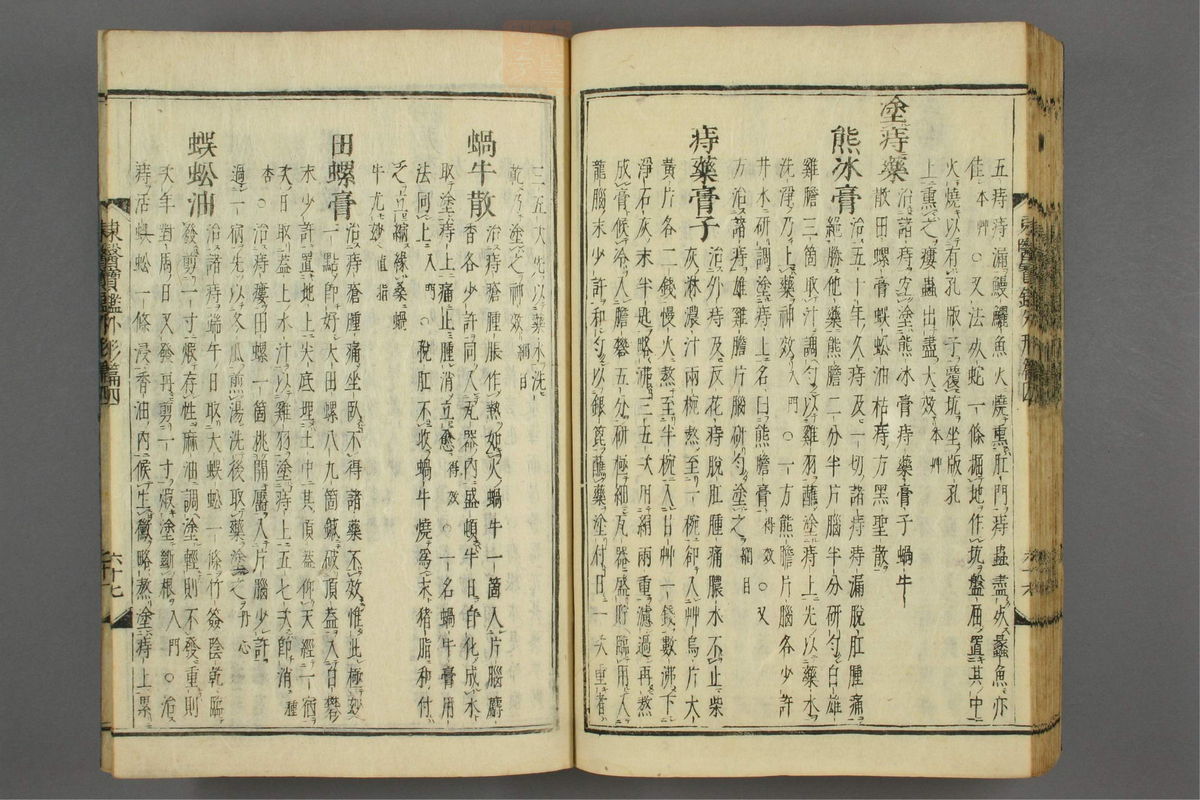 五痔痔漏鰻鱺魚火燒熏肛門痔蟲盡死蠡魚亦
佳本艸○又法死蛇一條掘地作坑盤屈置其中
火燒以有孔版子覆坑坐版孔
上熏之瘻蟲出盡大效本艸
塗痔藥治諸痔宜塗熊冰膏痔藥膏子蝸牛
散田螺膏蜈蚣油枯痔方黑聖散
熊冰膏治五十年久痔及一切諸痔痔漏脫肛腫痛
絕勝他藥熊膽二分半片腦半分研勻白雄
雞膽三箇取汁調勻以雞羽蘸塗痔上先以藥水
洗淨乃上藥神效入門○一方熊膽片腦各少許
井水研調塗痔上名曰熊膽膏得效○又
方治諸痔雄雞膽片腦研勻塗之綱目
痔藥膏子治外痔及反花痔脫肛腫痛膿水不止柴
灰淋濃汁兩椀熬至一椀卻入艸烏片大
黃片各二錢慢火熬至半椀入甘艸一錢數沸下
淨石灰末半匙略沸三五次用絹兩重濾過再熬
成膏候冷入膽礬五分研極細瓦器盛貯臨用入
龍腦末少許和勻以銀篦蘸藥塗付日一次重者
三五次先以藥水洗
乾乃塗之神效綱目
蝸牛散治痔瘡腫脹作熱如火蝸牛一箇入片腦麝
香各少許同入瓦器內盛頓半日自化成水
取塗痔上痛止腫消立愈得效○一名蝸牛膏用
法同上入門○脫肛不收蝸牛燒爲末猪脂和付
之立縮緣藥蝸
牛尤妙直指
田螺膏治痔瘡腫痛坐臥不得諸藥不效惟此極妙
一點卽好大田螺八九箇鍼破頂蓋入白礬
末少許置地上尖底埋土中其頂蓋仰天經一宿
次日取蓋上水汁以雞羽塗痔上五七次卽消種
杏○治痔瘻田螺一箇挑開靨入片腦少許
過一宿先以冬瓜煎湯洗後取藥塗之丹心
蜈蚣油治諸痔端午日取大蜈蚣一條竹簽陰乾臨
發剪二寸煅存性麻油調塗輕則不發重則
次年對周日又發再剪一寸煅塗斷根入門○治
痔活蜈蚣一條浸香油內候生黴略熬塗痔上累
東醫寶鑑外形篇四
六十七
東醫寶鑑外形篇四